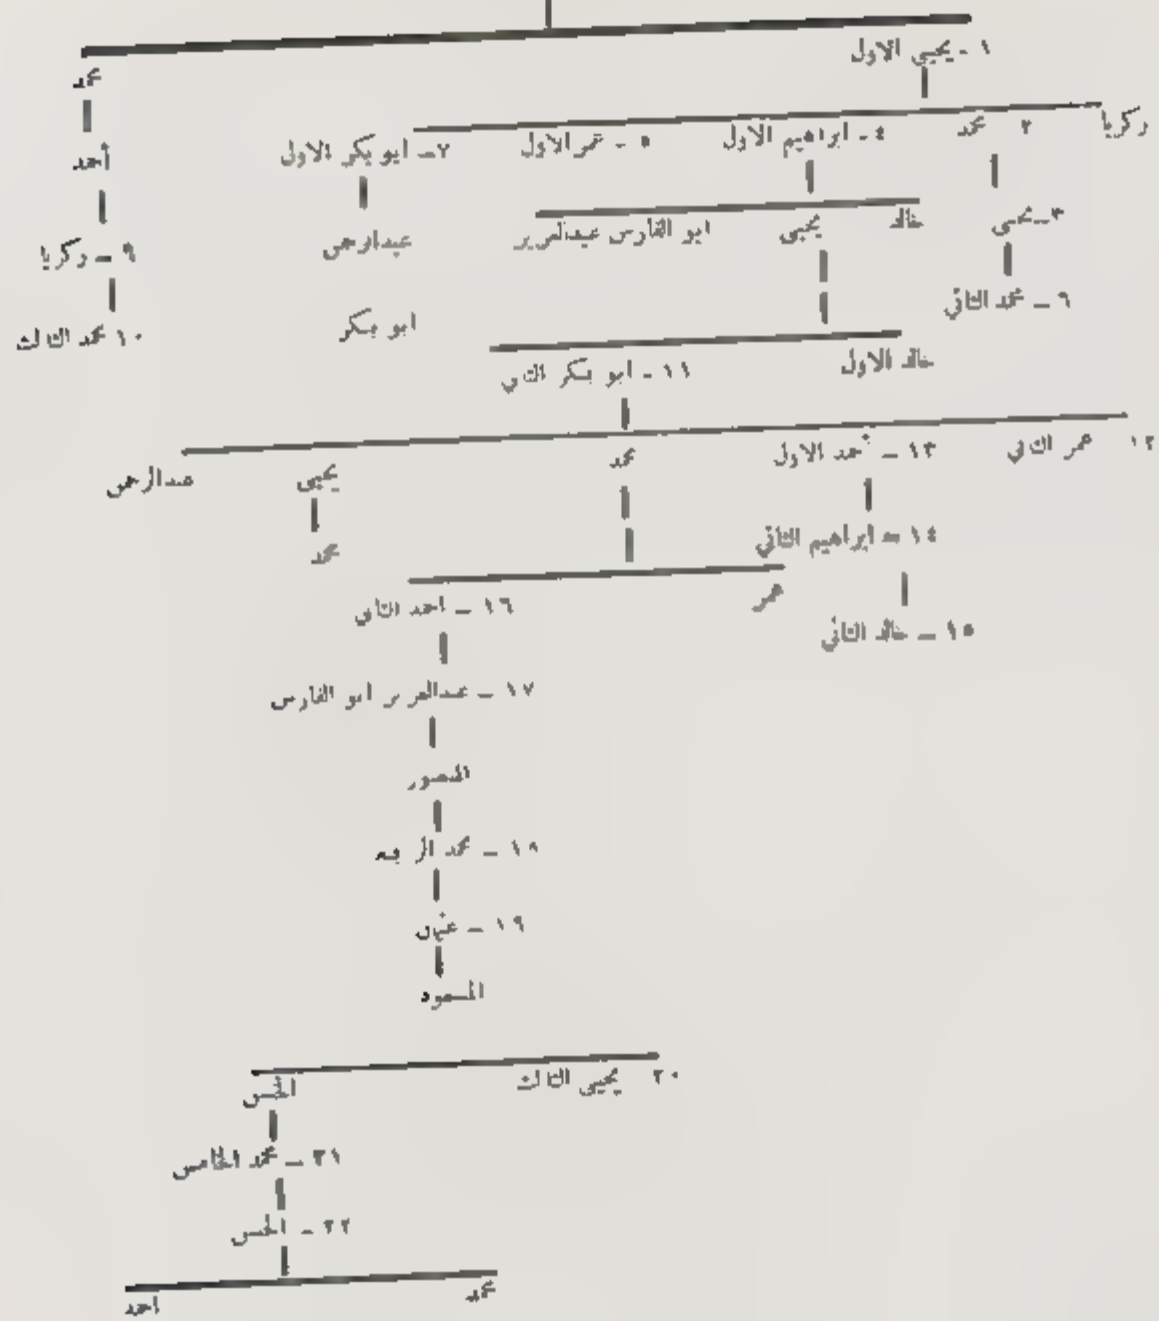 ١ - يحيى الاول
محمد
زكريا
٢ محمد
٤ - ابراهيم الاول
٥ - عمر الاول
٧ - ابو بكر الاول
أحمد
٣ - يحيى
خالد
يحيى
ابو الفارس عبدالعزيز
عبدالرحمن
٩ - زكريا
٦ - محمد الثاني
ابو بكر
١٠ محمد الثالث
خالد الاول
١١ - ابو بكر الثاني
١٢ عمر الثاني
١٣ - أحمد الاول
محمد
يحيى
عبدالرحمن
١٤ - ابراهيم الثاني
محمد
عمر
١٦ - احمد الثاني
١٥ - خالد الثاني
١٧ - عبدالعزيز ابو الفارس
المنصور
١٨ - محمد الرابع
١٩ - عثمان
المسعود
٢٠ يحيى الثالث
الحسن
٢١ - محمد الخامس
٢٢ - الحسن
محمد
احمد